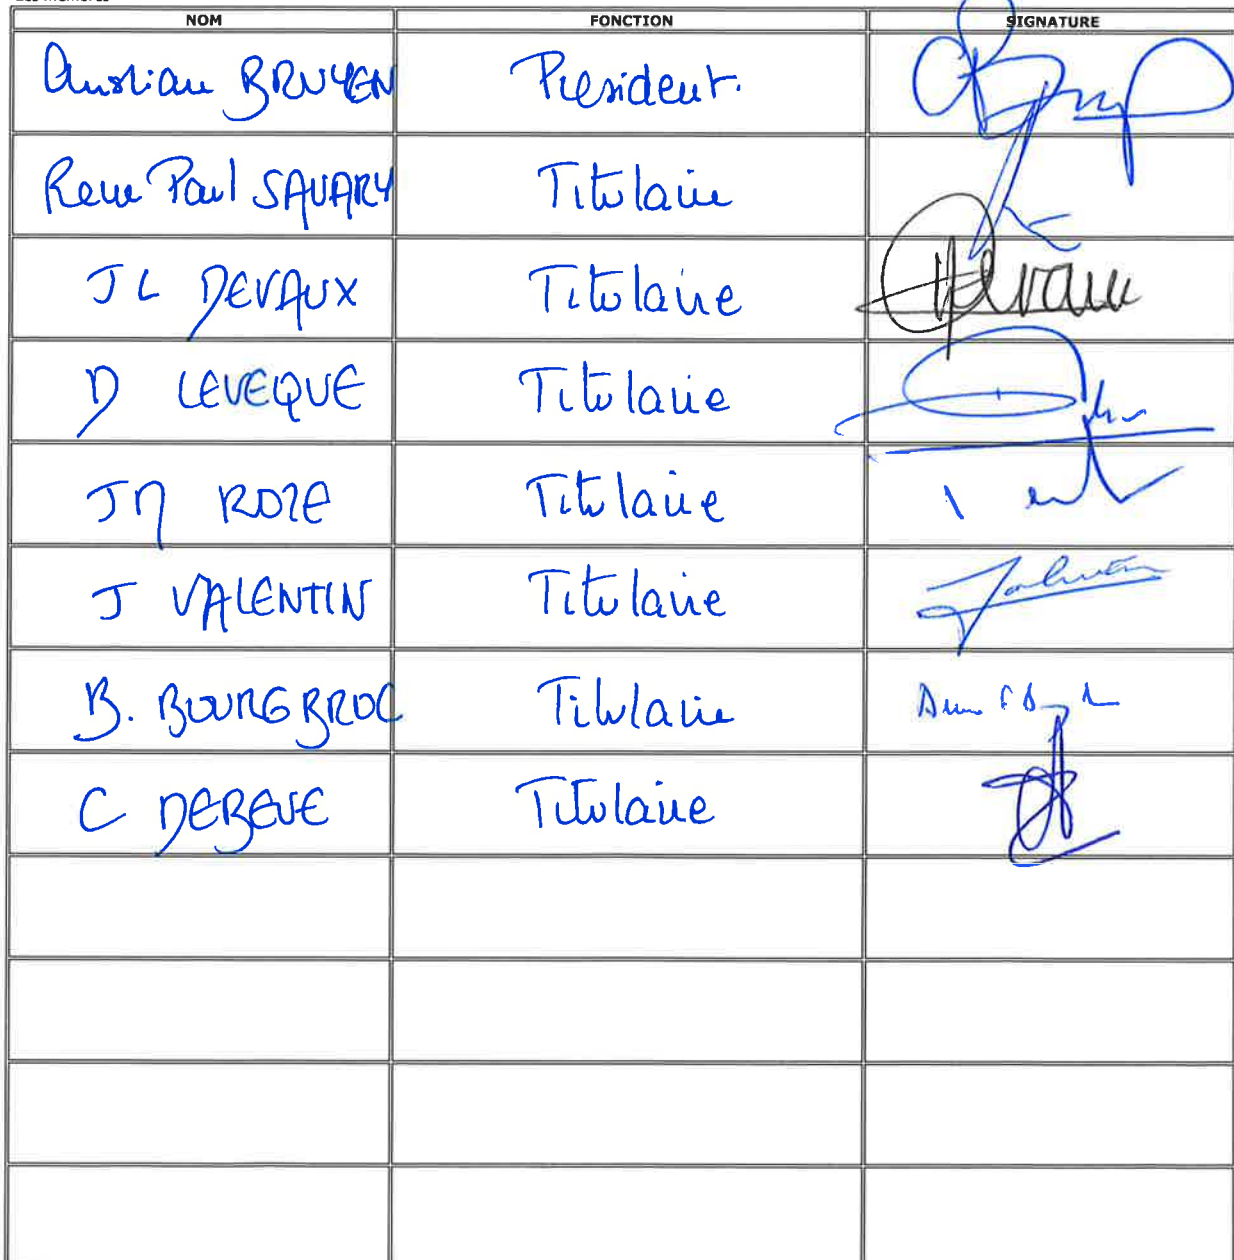 NOM FONCTION SIGNATURE
Christian BRUYEN Président.
René Paul SAVARY Titulaire
JL DEVAUX Titulaire
D LEVEQUE Titulaire
JM ROZE Titulaire
J VALENTIN Titulaire
B. BOURG BROC Titulaire
C DEBEVE Titulaire